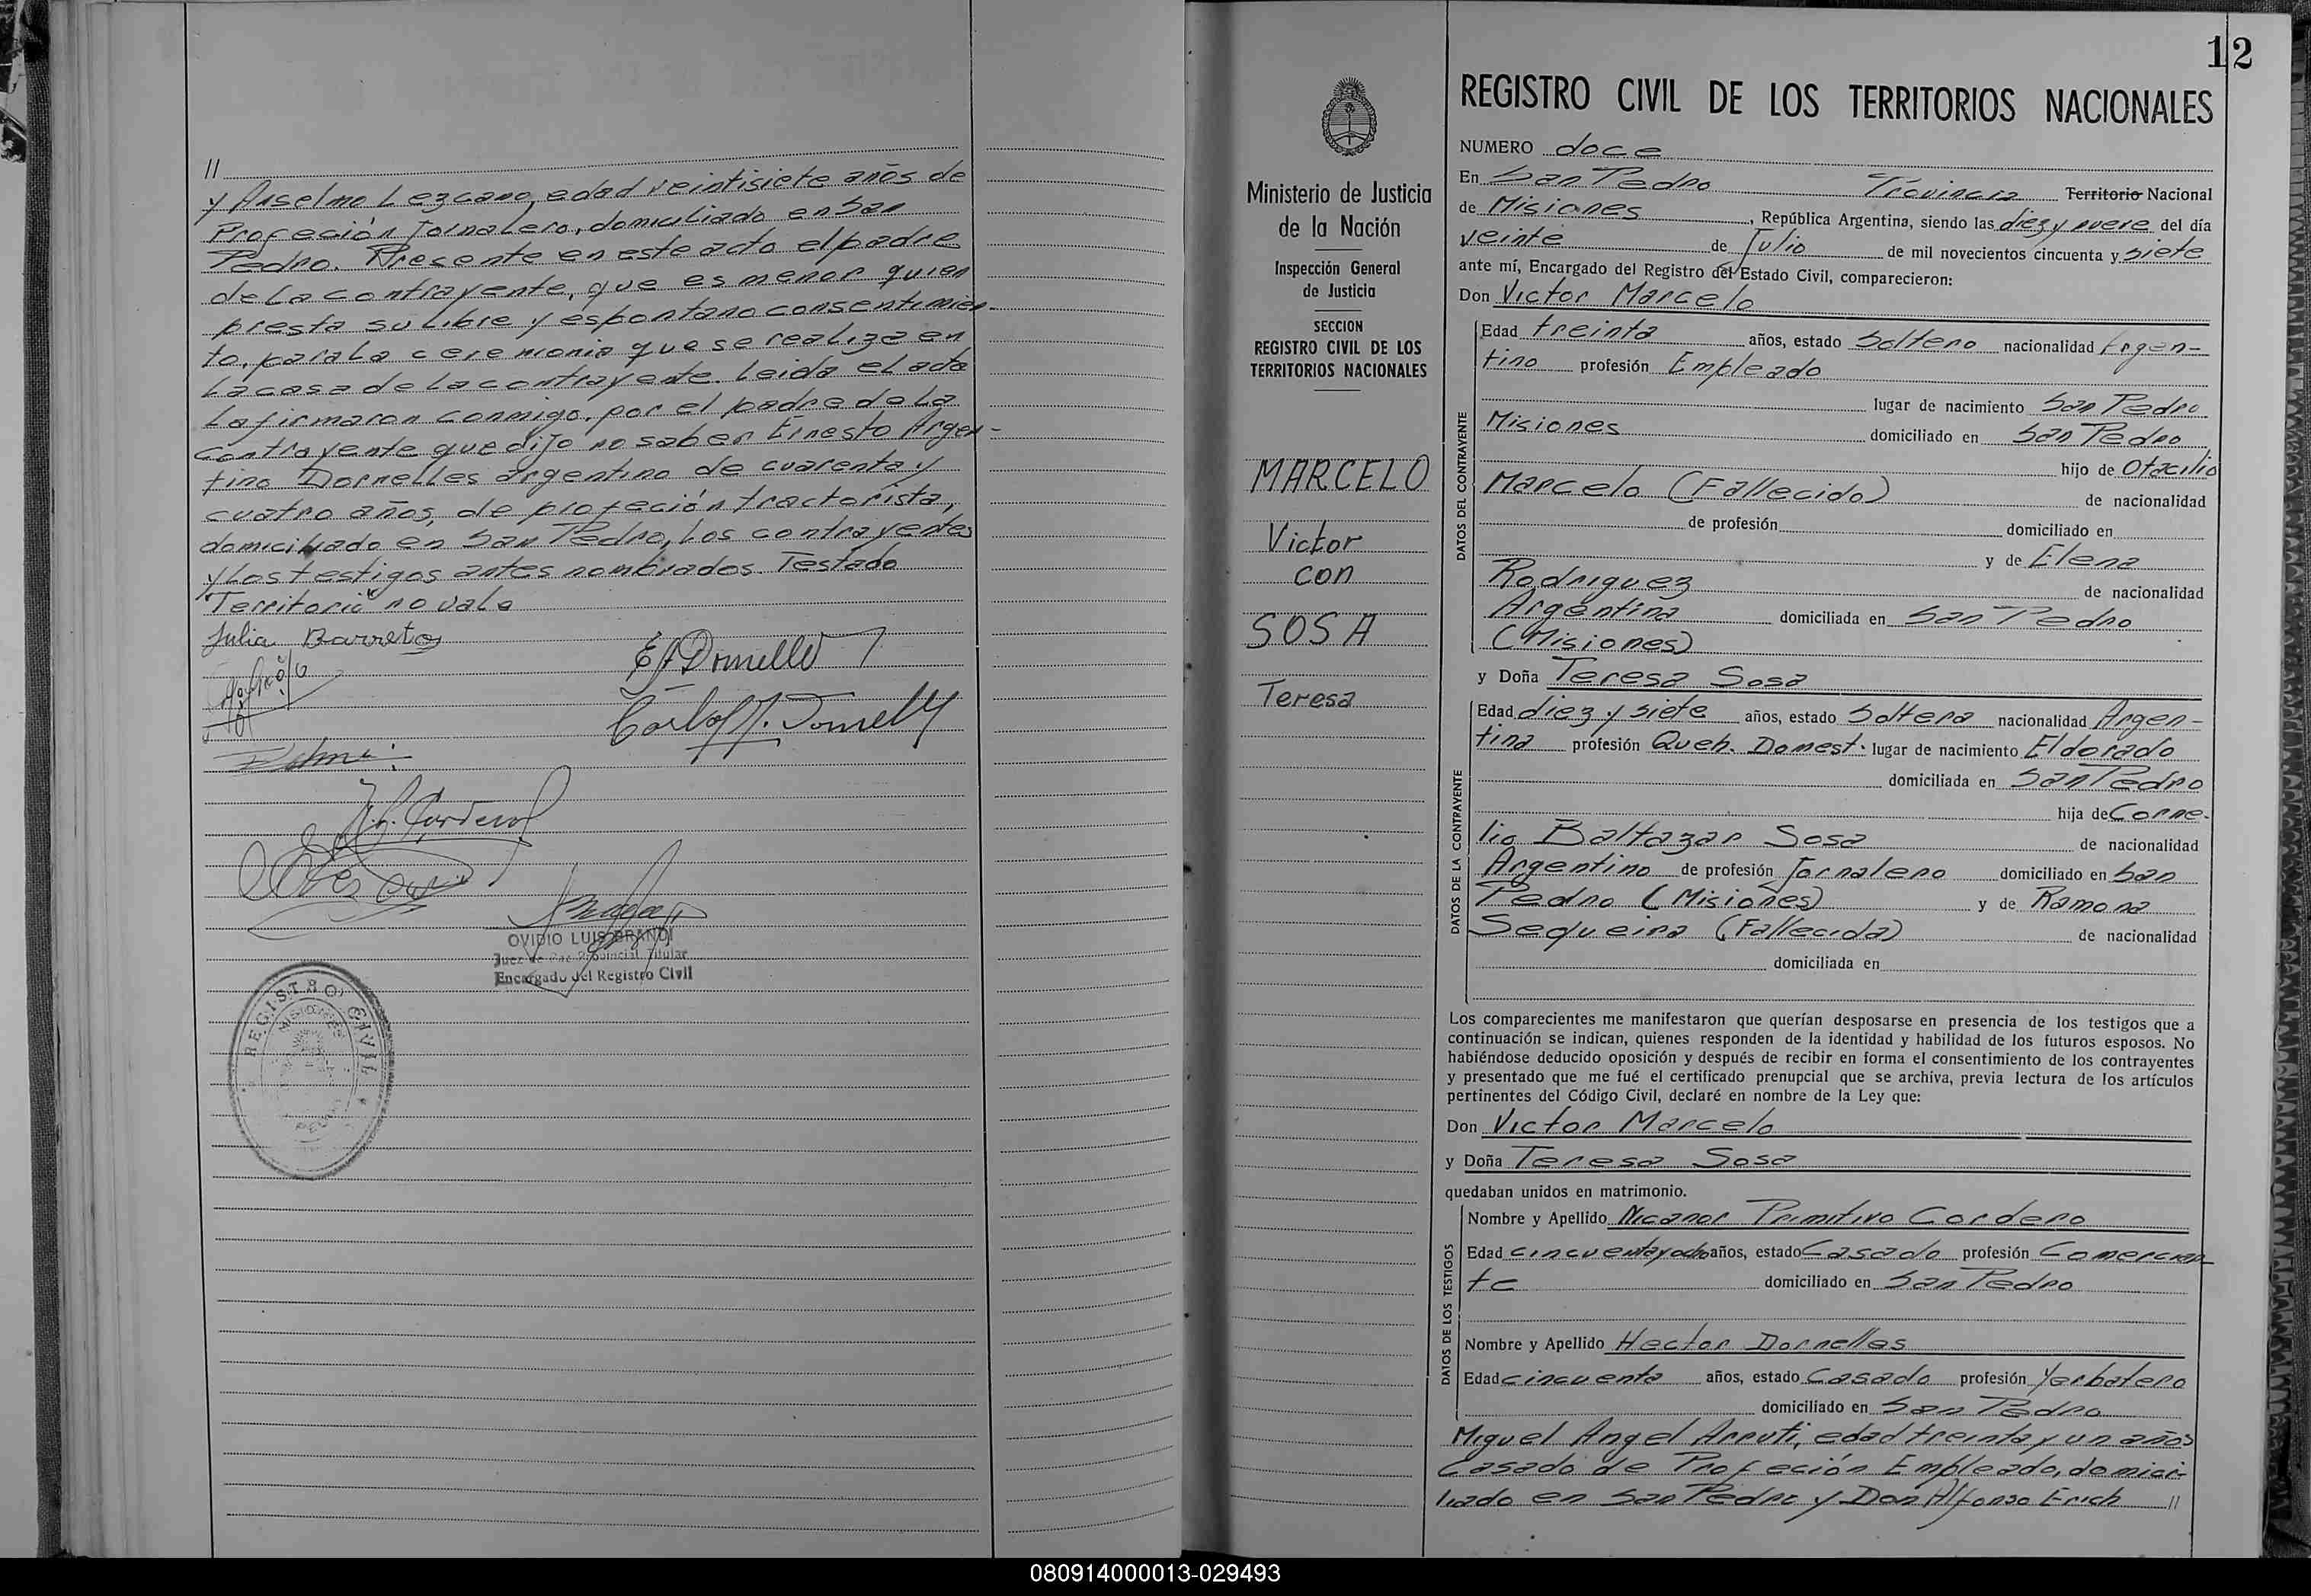 //
y Anselmo Lezcano, edad veintisiete años de
Profeción Jornalero, domiciliado en San
Pedro. Presente en este acto el padre
de la contrayente, que es menor quien
presta su libre y espontano consentimien-
to, para la ceremonia que se realiza en
la casa de la contrayente. Leida el acta
la firmaron conmigo, por el padre de la
contrayente que dijo no saber Ernesto Argen-
tino Dornelles argentino de cuarenta y
cuatro años, de profeción tractorista,
domiciliado en San Pedro, los contrayentes
y los testigos antes nombrados. Testado
"Territorio" no vale
Julia Barreto
OVIDIO LUIS BRANDI
Juez de Paz Provincial Titular
Encargado del Registro Civil
REGISTRO CIVIL
MISIONES
12
Ministerio de Justicia
de la Nación
Inspección General
de Justicia
SECCION
REGISTRO CIVIL DE LOS
TERRITORIOS NACIONALES
MARCELO
Victor
con
SOSA
Teresa
REGISTRO CIVIL DE LOS TERRITORIOS NACIONALES
NUMERO doce
En San Pedro Provincia Territorio Nacional
de Misiones, República Argentina, siendo las diez y nueve del día
veinte de Julio de mil novecientos cincuenta y siete
ante mí, Encargado del Registro del Estado Civil, comparecieron:
Don Victor Marcelo
DATOS DEL CONTRAYENTE
Edad treinta años, estado Soltero nacionalidad Argen-
tino profesión Empleado
lugar de nacimiento San Pedro
Misiones domiciliado en San Pedro
hijo de Otacilio
Marcelo (Fallecido) de nacionalidad
de profesión domiciliado en
y de Elena
Rodriguez de nacionalidad
Argentina domiciliada en San Pedro
(Misiones)
y Doña Teresa Sosa
DATOS DE LA CONTRAYENTE
Edad diez y siete años, estado Soltera nacionalidad Argen-
tina profesión Queh. Domest. lugar de nacimiento Eldorado
domiciliada en San Pedro
hija de Corne-
lio Baltazar Sosa de nacionalidad
Argentino de profesión Jornalero domiciliado en San
Pedro (Misiones) y de Ramona
Sequeira (Fallecida) de nacionalidad
domiciliada en
Los comparecientes me manifestaron que querían desposarse en presencia de los testigos que a
continuación se indican, quienes responden de la identidad y habilidad de los futuros esposos. No
habiéndose deducido oposición y después de recibir en forma el consentimiento de los contrayentes
y presentado que me fué el certificado prenupcial que se archiva, previa lectura de los artículos
pertinentes del Código Civil, declaré en nombre de la Ley que:
Don Victor Marcelo
y Doña Teresa Sosa
quedaban unidos en matrimonio.
DATOS DE LOS TESTIGOS
Nombre y Apellido Nicanor Primitivo Cordero
Edad cincuenta y ocho años, estado Casado profesión Comercian
te domiciliado en San Pedro
Nombre y Apellido Hector Dornelles
Edad cincuenta años, estado Casado profesión Yerbatero
domiciliado en San Pedro
Miguel Angel Arruti, edad treinta y un años
Casado de Profeción Empleado, domici-
liado en San Pedro y Don Alfonso Erich //
080914000013-029493